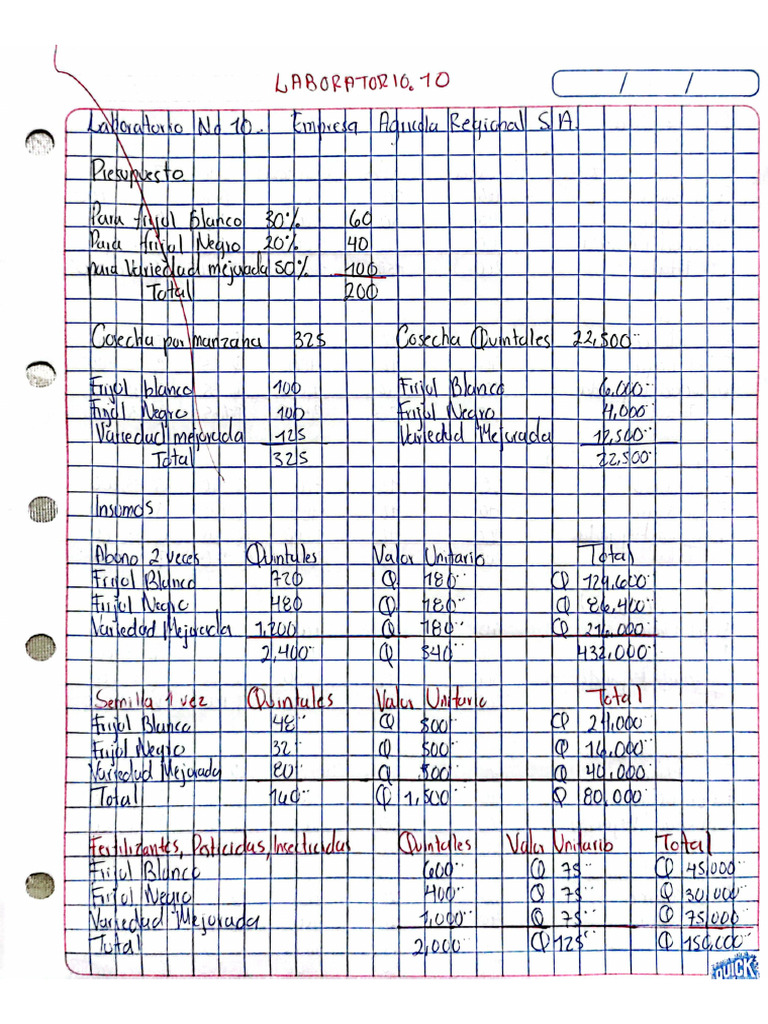 LABORATORIO. 10
/ /
Laboratorio No 10. Empresa Agricola Regional S.A.
Presupuesto
Para frijol Blanco 30% 60
Para frijol Negro 20% 40
para Variedad mejorada 50% 100
Total 200
Cosecha por manzana 325 Cosecha Quintales 22,500
Frijol blanco 100 Frijol Blanco 6,000
Frijol Negro 100 Frijol Negro 4,000
Variedad mejorada 125 Variedad Mejorada 12,500
Total 325 22,500
Insumos
Abono 2 veces Quintales Valor Unitario Total
Frijol Blanco 720 Q 180 Q 129,600
Frijol Negro 480 Q 180 Q 86,400
Variedad Mejorada 1,200 Q 180 Q 216,000
2,400 Q 540 432,000
Semilla 1 vez Quintales Valor Unitario Total
Frijol Blanco 48 Q 500 Q 24,000
Frijol Negro 32 Q 500 Q 16,000
Variedad Mejorada 80 Q 500 Q 40,000
Total 160 Q 1,500 Q 80,000
Fertilizantes, Pesticidas, Insecticidas Quintales Valor Unitario Total
Frijol Blanco 600 Q 75 Q 45,000
Frijol Negro 400 Q 75 Q 30,000
Variedad Mejorada 1,000 Q 75 Q 75,000
Total 2,000 Q 125 Q 150,000
QUICK